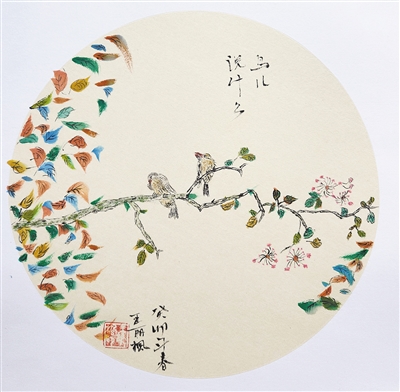 鸟儿
说什么
癸卯年春
王明枫